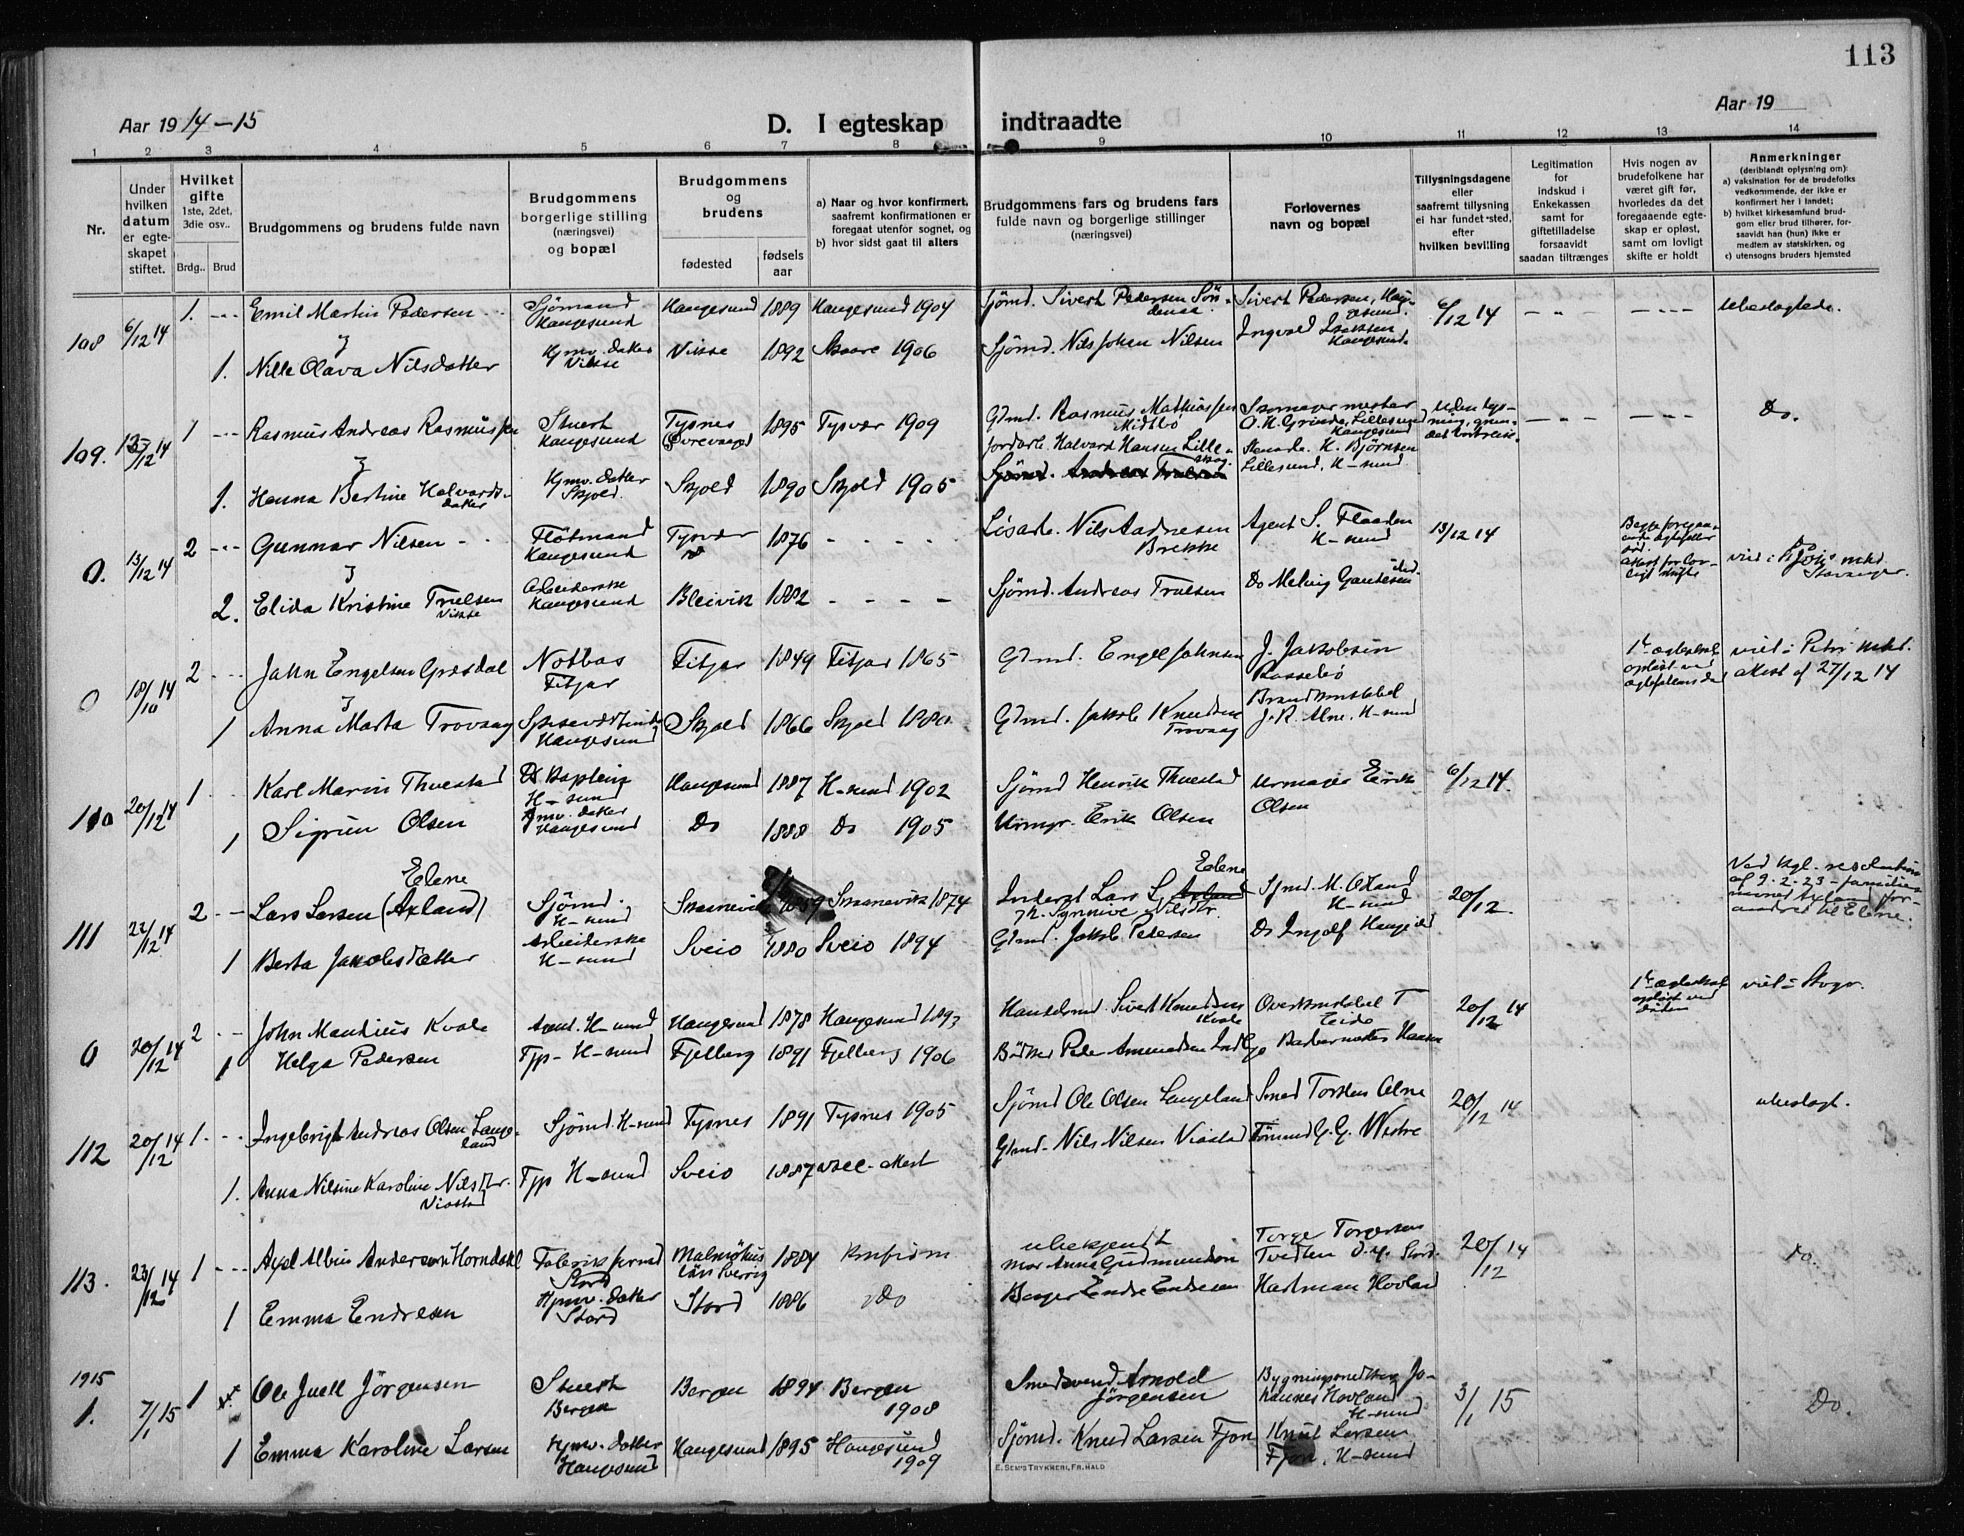 113
Aar 1914-15
D. I egteskap indtraadte
Aar 19
1 2 3 4 5 6 7 8 9 10 11 12 13 14
Nr.
Under hvilken datum er egteskapet stiftet.
Hvilket gifte 1ste, 2det, 3die osv..
Brdg.. Brud
Brudgommens og brudens fulde navn
Brudgommens borgerlige stilling (næringsvei) og bopæl
Brudgommens og brudens
fødested
fødsels aar
a) Naar og hvor konfirmert, saafremt konfirmationen er foregaat utenfor sognet, og
b) hvor sidst gaat til alters
Brudgommens fars og brudens fars fulde navn og borgerlige stillinger (næringsvei)
Forlovernes navn og bopæl
Tillysningsdagene eller saafremt tillysning ei har fundet sted, efter hvilken bevilling
Legitimation for indskud i Enkekassen samt for giftetilladelse forsaavidt saadan tiltrænges
Hvis nogen av brudefolkene har været gift før, hvorledes da det foregaaende egteskap er opløst, samt om lovligt skifte er holdt
Anmerkninger (deriblandt oplysning om):
a) vaksination for de brudefolks vedkommende, der ikke er konfirmert her i landet;
b) hvilket kirkesamfund brudgom eller brud tilhører, forsaavidt han (hun) ikke er medlem av statskirken, og
c) utensogns bruders hjemsted
108 6/12 14 1. Emil Martin Pedersen Sjømand Haugesund Haugesund 1889 Haugesund 1904 Sjømd. Sivert Pedersen Sivert Pedersen, Haugesund. 6/12 14 ubeslegtede.
1. Nille Olava Nilsdatter Hjmv. datter Vikse Vikse 1892 Skaare 1906 Sjømd. Nils Johan Nilsen Ingvald Isaksen Haugesund.
109. 13/12 14 1 Rasmus Andreas Rasmussen Stuert Haugesund Tysnes 1895 Tysvær 1909 Gmd. Rasmus Mathiassen Midtbø Skomagermester O. H. Grinde, Lillesund Haugesund Do.
1. Hanna Bertine Halvardsdatter Hjmv. datter Skjold Skjold 1890 Skjold 1905 Jordarb. Halvard Hansen Lilleskog. H. Bjørnsen Lillesund, H-sund
Sjømd. Andreas Truelsen
0. 13/12 14 2 Gunnar Nilsen Fløtmand Haugesund Tysvær 1876 Løsarb. Nils Aadnesen Brekke Agent S. Flaaden H-sund 13/12 14
2. Elida Kristine Truelsen Vikse Arbeiderske Haugesund Bleivik 1882 Sjømd. Andreas Truelsen Do
0 18/10 14 2 John Engelsen Græsdal Notbas Fitjar Fitjar 1849 Fitjar 1865 Gmd. Engel Johnsen J. Jakobsen Rossebø viet i Petri mkt. attest af 27/12 14
1 Anna Marta Trovaag Haugesund Skjold 1866 Skjold 1880 Gmd. Jakob Knudsen Trovaag Brandkonstabel J. R. Alne, H-sund
110 20/12 14 1 Karl Marin Thuestad H-sund Haugesund 1887 H-sund 1902 Sjømd Henrik Thuestad Urmager Eirik Olsen 6/12 14.
1 Sigrun Olsen Hjmv. datter Haugesund Do 1888 Do 1905 Urmgr. Erik Olsen
111 22/12 14 2 Lars Larsen (Axland) Elene Sjømd. H-sund Skaanevik 1859 Skaanevik 1874 Inderst Lars L. Axland Elene Sjmd. M. Økland H-sund 20/12. Ved kgl. resolution af 9-2-23 familienavnet Axland forandret til Elene.
1 Berta Jakobsdatter Arbeiderske H-sund Sveio 1880 Sveio 1894 Gmd. Jakob Petersen Do Ingolf Haugeid
0 20/12 14 2 John Mandius Kvale Agent. H-sund Haugesund 1878 Haugesund 1893 Handelsmd. Sivert Knudsen Kvale Overkonstabel T Eide 20/12 14
1 Helga Pedersen Tjp- H-sund Fjelberg 1891 Fjelberg 1906 Bødker Peder Amundsen Barbermester Hansen
112 20/12 14 1. Ingebrigt Andreas Olsen Langeland Sjømd. H-sund Tysnes 1891 Tysnes 1905 Sjømd Ole Olsen Langeland Smed Torsten Alne 20/12 14 ubeslegt.
1. Anna Nilsine Karoline Nilsdtr. Viastad Tjp H-sund Sveio 1887 vacc. attest Gmd. Nils Nilsen Viastad Tømmd G. G. Westre
113. 23/12 14 1 Axel Albin Anderson Horndahl Stord Malmøhus län Sverig 1884 konfirm ubekjendt mor Anna Gudmundson Torge Torgersen Tvedten Stord. 20/12 14 Do.
1 Emma Endresen Hjmv. datter Stord Stord 1886 Do Endre Endresen Hartman Hovland
1915
1. 7/1 15 1 Ole Juell Jörgensen Stuert Bergen Bergen 1894 Bergen 1908 Smedsvend Arnold Jörgensen Johannes Hovland H-sund 3/1 15 Do.
1 Emma Karoline Larsen Hjmv. datter Haugesund Haugesund 1895 Haugesund 1909 Sjømd. Knud Larsen Fjon Knut Larsen Fjon, H-sund
E. SEM'S TRYKKERI, FR.HALD